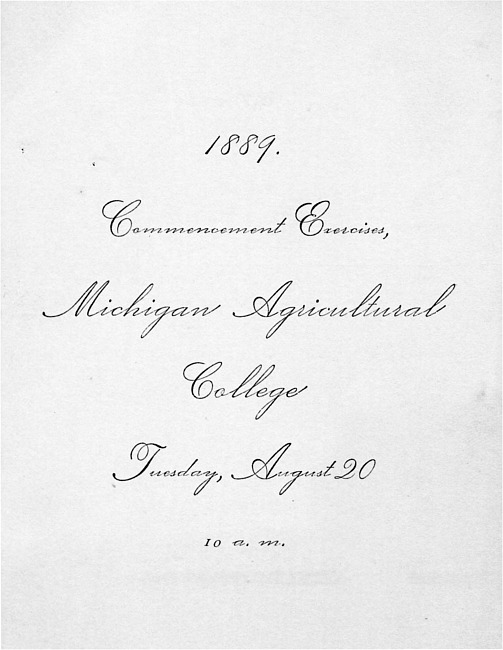 1889.
Commencement Exercises,
Michigan Agricultural
College
Tuesday, August 20
10 a. m.